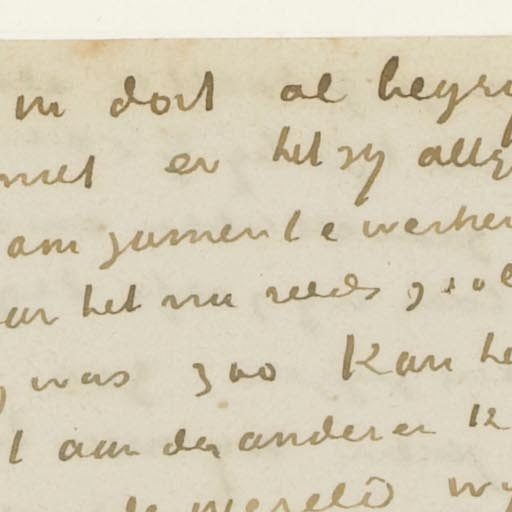 in dort al begr
met er het zy alle
om zamen te werken
ar het nu reeds zoo
was zoo Kan he
t aan den anderen k
de wereld wy